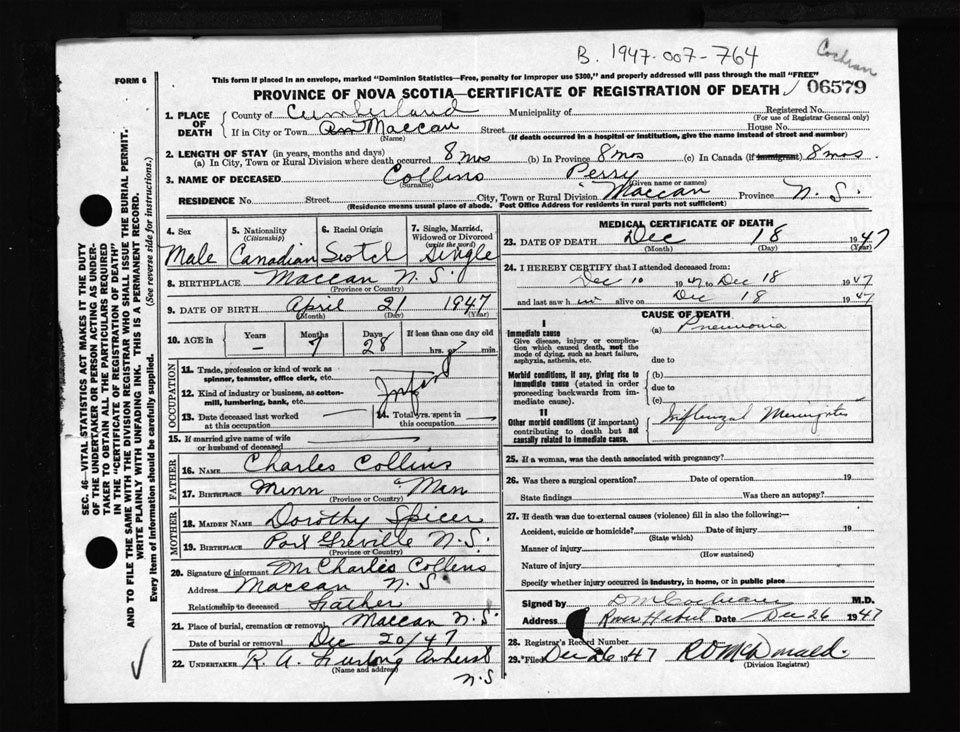 B. 1947-007-764
Cochran
FORM 6
This form if placed in an envelope, marked "Dominion Statistics—Free, penalty for improper use $300," and properly addressed will pass through the mail "FREE"
PROVINCE OF NOVA SCOTIA—CERTIFICATE OF REGISTRATION OF DEATH 06579
1. PLACE OF DEATH County of Cumberland Municipality of Registered No.
(For use of Registrar General only)
If in City or Town Maccan Street House No.
(Name) (If death occurred in a hospital or institution, give the name instead of street and number)
2. LENGTH OF STAY (in years, months and days)
(a) In City, Town or Rural Division where death occurred 8 mos (b) In Province 8 mos (c) In Canada (if immigrant) 8 mos.
3. NAME OF DECEASED Collins Perry
(Surname) (Given name or names)
RESIDENCE No. Street City, Town or Rural Division Maccan Province N. S.
(Residence means usual place of abode. Post Office Address for residents in rural parts not sufficient)
4. Sex 5. Nationality (Citizenship) 6. Racial Origin 7. Single, Married, Widowed or Divorced (write the word)
Male Canadian Scotch Single
8. BIRTHPLACE Maccan N. S.
(Province or Country)
9. DATE OF BIRTH April 21 1947
(Month) (Day) (Year)
10. AGE in Years Months Days If less than one day old
– 7 28 hrs. or min.
OCCUPATION
11. Trade, profession or kind of work as spinner, teamster, office clerk, etc.
12. Kind of industry or business, as cotten-mill, lumbering, bank, etc. Infant
13. Date deceased last worked at this occupation 14. Total yrs. spent in this occupation
15. If married give name of wife or husband of deceased
FATHER
16. NAME Charles Collins
17. BIRTHPLACE Minn Man
(Province or Country)
MOTHER
18. MAIDEN NAME Dorothy Spicer
19. BIRTHPLACE Port Greville N. S.
(Province or Country)
20. Signature of informant Mr Charles Collins
Address Maccan N. S.
Relationship to deceased Father
21. Place of burial, cremation or removal Maccan N. S.
Date of burial or removal Dec 20/47
22. UNDERTAKER R. A. Furlong Amherst
(Name and address) N.S
MEDICAL CERTIFICATE OF DEATH
23. DATE OF DEATH Dec 18 1947
(Month) (Day) (Year)
24. I HEREBY CERTIFY that I attended deceased from:
Dec 10 1947 to Dec 18 1947
and last saw him alive on Dec 18 1947
CAUSE OF DEATH
I
Immediate cause (a) Pneumonia
Give disease, injury or complication which caused death, not the mode of dying, such as heart failure, asphyxia, asthenia, etc.
due to
Morbid conditions, if any, giving rise to immediate cause (stated in order proceeding backwards from immediate cause).
(b)
due to
(c)
II
Other morbid conditions (if important) contributing to death but not causally related to immediate cause.
Influenzal Meningitis
25. If a woman, was the death associated with pregnancy?
26. Was there a surgical operation? Date of operation 19
State findings Was there an autopsy?
27. If death was due to external causes (violence) fill in also the following:—
Accident, suicide or homicide? Date of injury 19
(State which)
Manner of injury
(How sustained)
Nature of injury
Specify whether injury occurred in industry, in home, or in public place
Signed by D M Cochrane M.D.
Address River Hebert Date Dec 26 1947
28. Registrar's Record Number
29. Filed Dec 26 1947 R D McDonald.
(Division Registrar)
SEC. 46—VITAL STATISTICS ACT MAKES IT THE DUTY
OF THE UNDERTAKER OR PERSON ACTING AS UNDER-
TAKER TO OBTAIN ALL THE PARTICULARS REQUIRED
IN THE "CERTIFICATE OF REGISTRATION OF DEATH"
AND TO FILE THE SAME WITH THE DIVISION REGISTRAR WHO SHALL ISSUE THE BURIAL PERMIT.
WRITE PLAINLY WITH UNFADING INK. THIS IS A PERMANENT RECORD.
Every item of information should be carefully supplied. (See reverse side for instructions.)